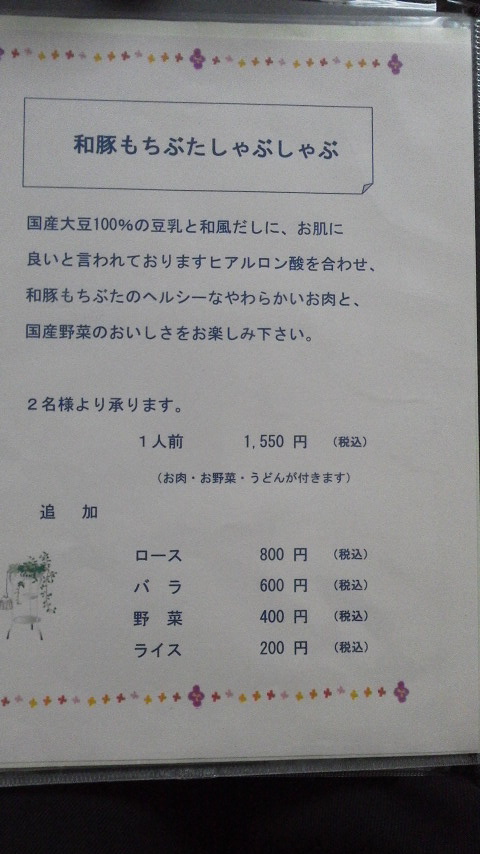 和豚もちぶたしゃぶしゃぶ
国産大豆100%の豆乳と和風だしに、お肌に
良いと言われておりますヒアルロン酸を合わせ、
和豚もちぶたのヘルシーなやわらかいお肉と、
国産野菜のおいしさをお楽しみ下さい。
２名様より承ります。
１人前 1,550 円 （税込）
（お肉・お野菜・うどんが付きます）
追 加
ロース 800 円 （税込）
バ ラ 600 円 （税込）
野 菜 400 円 （税込）
ライス 200 円 （税込）